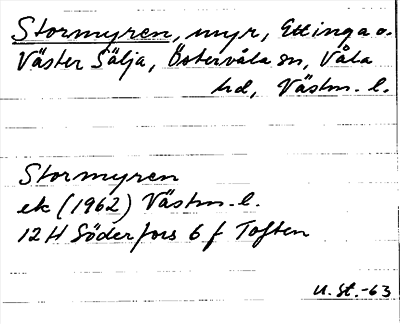 Stormyren, myr, Ettinga o.
Väster Sälja, Östervåla sn, Våla
hd, Västm. l.
Stormyren
ek (1962) Västm. l.
12 H Söderfors 6 f Toften
U. St. -63